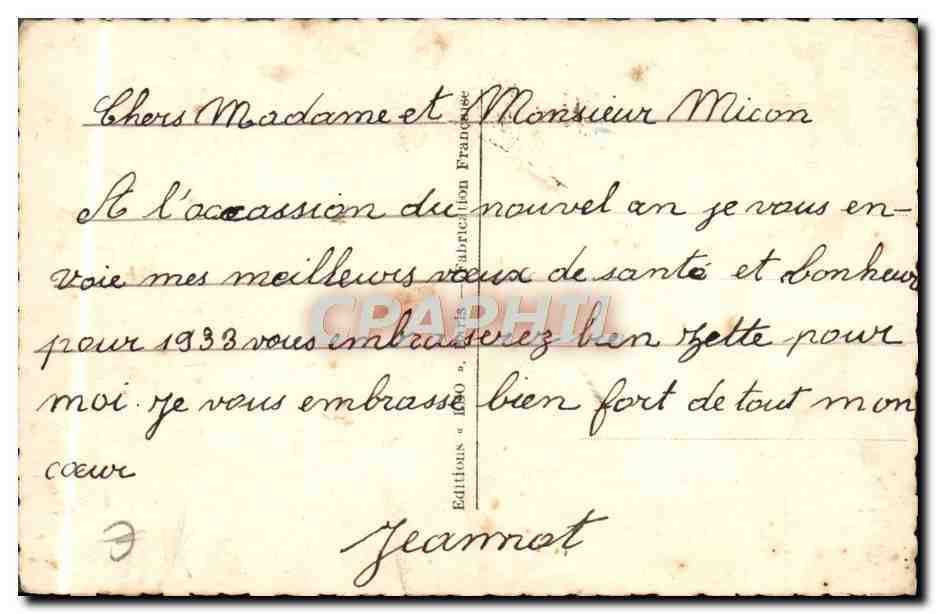 Chers Madame et Monsieur Micon
A l'accassion du nouvel an je vous en-
voie mes meilleurs vœux de santé et bonheur
pour 1933 vous embrasserez bien Zette pour
moi. Je vous embrasse bien fort de tout mon
cœur
Jeannot
Editions " " Paris — Fabrication Française
CPAPHIL